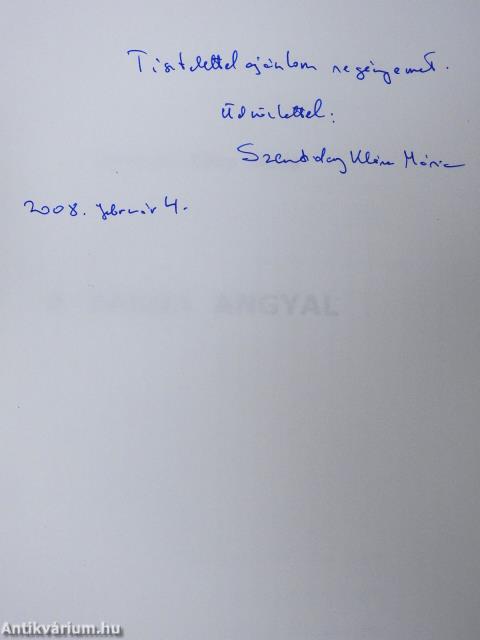 Tisztelettel ajánlom regényemet.
Üdvözlettel:
Klára Mária
2008. február 4.
ANGYAL
Antikvárium.hu